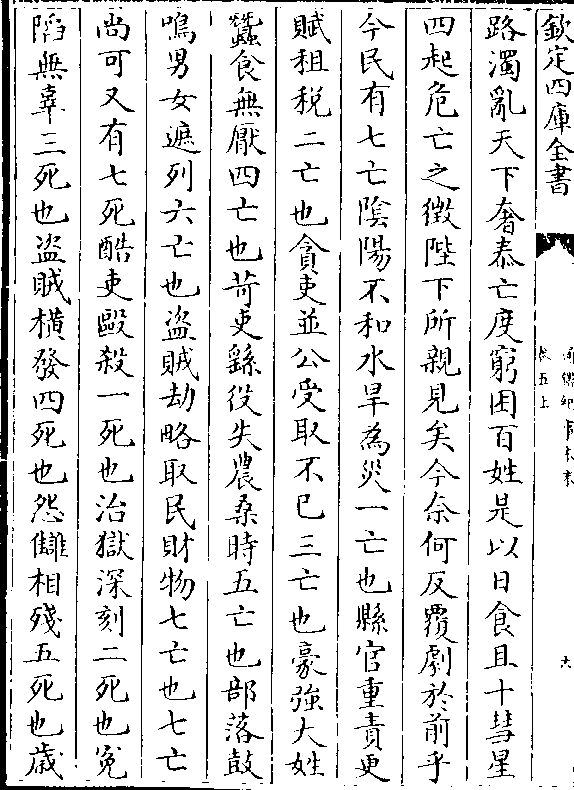 欽定四庫全書
通鑑紀事本末
卷五上
路濁亂天下奢泰亡度窮困百姓是以日食且十彗星
四起危亡之徵陛下所親見矣今奈何反覆劇於前乎
今民有七亡隂陽不和水旱為災一亡也縣官重責更
賦租税二亡也貪吏並公受取不已三亡也豪強大姓
蠶食無厭四亡也苛吏繇役失農桑時五亡也部落鼓
鳴男女遮列六亡也盗賊劫略取民財物七亡也七亡
尚可又有七死酷吏毆殺一死也治獄深刻二死也寃
陷無辜三死也盗賊橫發四死也怨讎相殘五死也歳